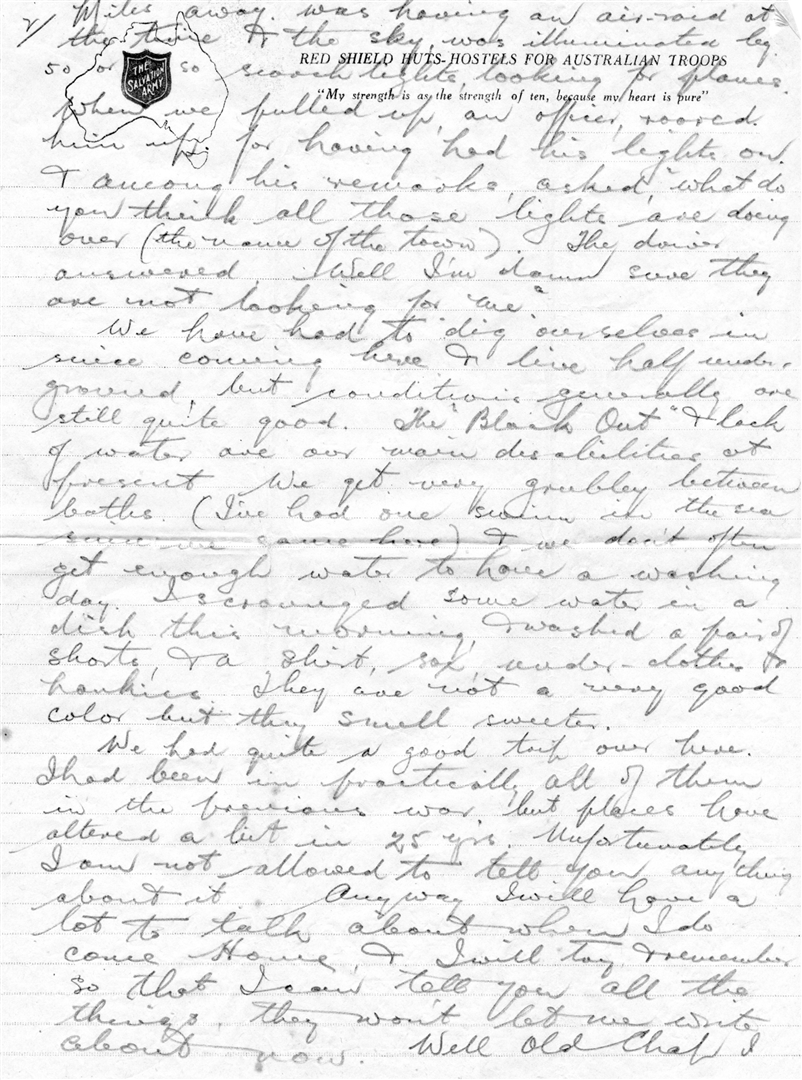 2/ Miles away was having an air-raid at
the time & the sky was illuminated by
RED SHIELD HUTS-HOSTELS FOR AUSTRALIAN TROOPS
THE
SALVATION
ARMY
50 or so searchlights, looking for planes.
"My strength is as the strength of ten, because my heart is pure"
When we pulled up, an officer, roared
him up, for having had his lights on.
& among his remarks, asked, "what do
you think all those lights are doing
over (the name of the town). The driver
answered "Well I'm damn sure they
are not looking for me"
We have had to "dig" ourselves in
since coming here & live half under-
ground, but conditions generally are
still quite good. The "Black Out" & lack
of water are our main disabilities at
present. We get very grubbley between
baths. (I've had one swim in the sea
since we came here) & we don't often
get enough water to have a washing
day. I scrounged some water in a
dish this morning, & washed a pair of
shorts, & a shirt, sox, under-clothes &
hankies. They are not a very good
color but they smell sweeter.
We had quite a good trip over here.
I had been in practically all of them
in the previous war, but places have
altered a bit in 25 yrs. Unfortunately
I am not allowed to tell you anything
about it. Anyway I will have a
lot to talk about when I do
come Home, & I will try & remember
so that I can tell you all the
things, they won't let me write
about now. Well Old Chap I